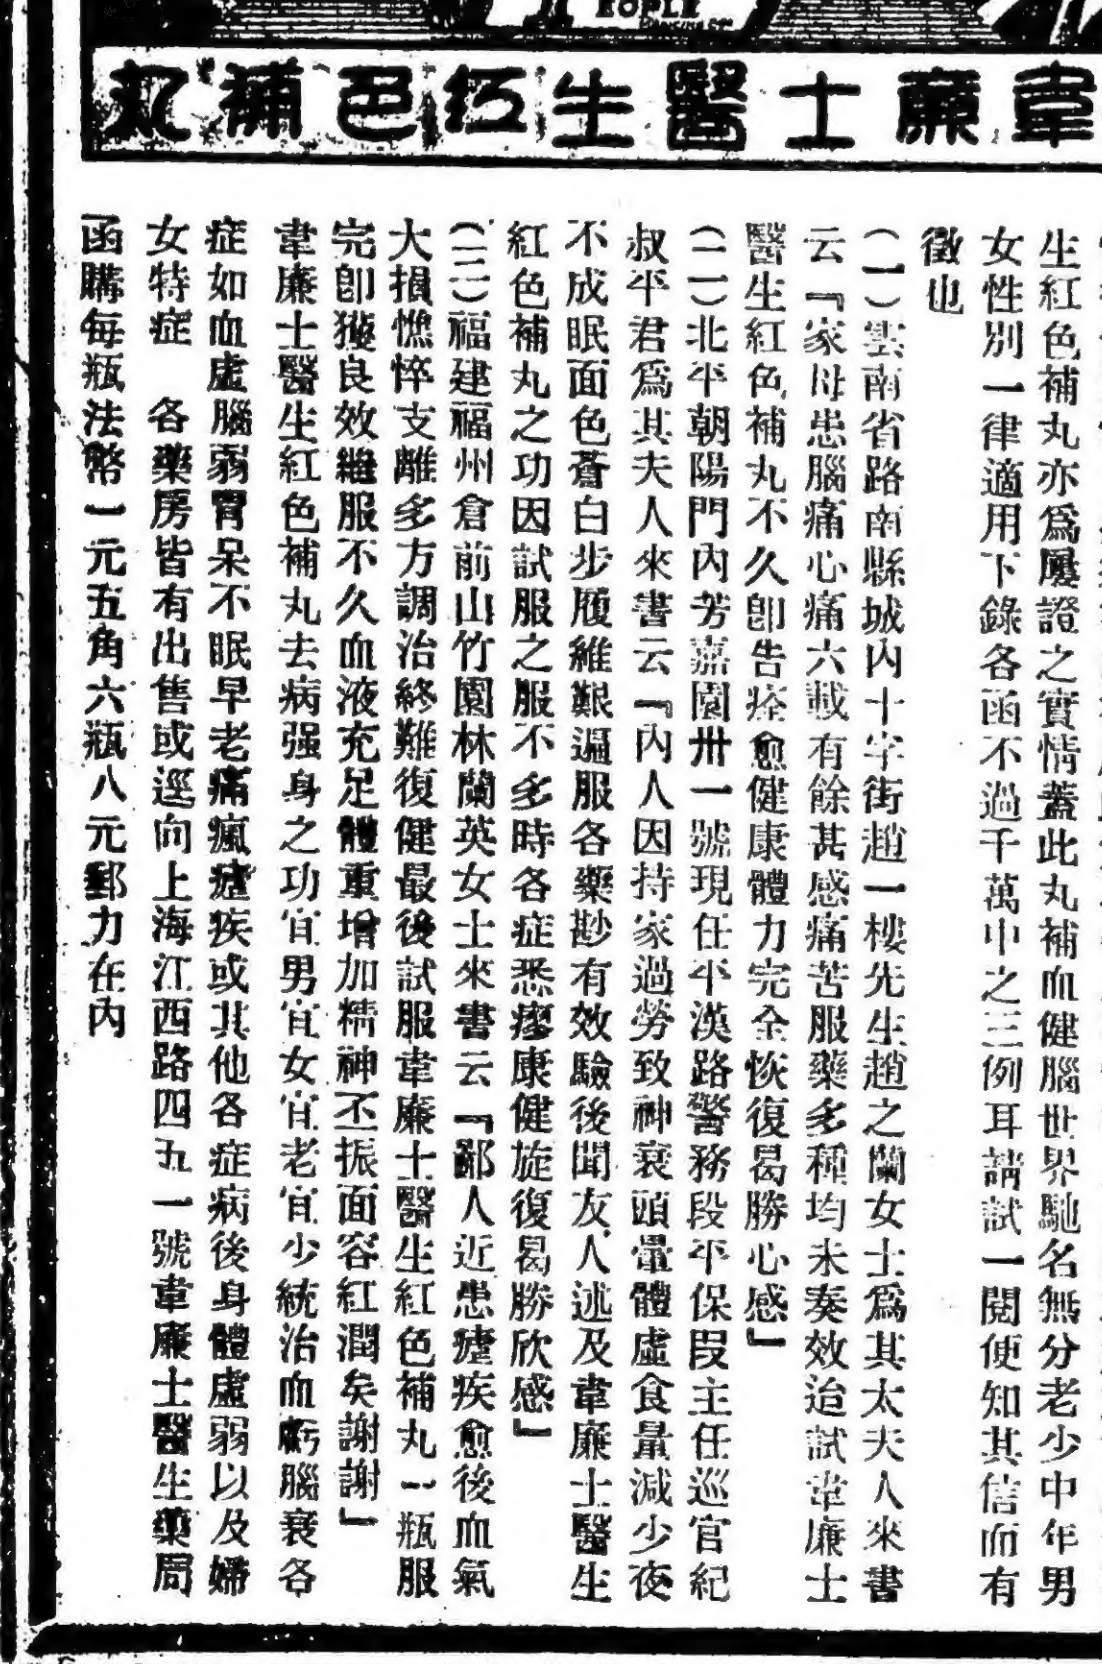 EOPLE
韋廉士醫生紅色補丸
生紅色補丸亦爲屢證之實情蓋此丸補血健腦世界馳名無分老少中年男
女性別一律適用下錄各函不過千萬中之三例耳請試一閱便知其信而有
徵也
(一)雲南省路南縣城內十字街趙一樓先生趙之蘭女士爲其太夫人來書
云『家母患腦痛心痛六載有餘甚感痛苦服藥多種均未奏效迨試韋廉士
醫生紅色補丸不久卽告痊愈健康體力完全恢復曷勝心感』
(二)北平朝陽門內芳嘉園卅一號現任平漢路警務段平保段主任巡官紀
叔平君爲其夫人來書云『內人因持家過勞致神衰頭暈體虛食量減少夜
不成眠面色蒼白步履維艱遍服各藥尠有效驗後聞友人述及韋廉士醫生
紅色補丸之功因試服之服不多時各症悉瘳康健旋復曷勝欣感』
(三)福建福州倉前山竹園林蘭英女士來書云『鄙人近患瘧疾愈後血氣
大損憔悴支離多方調治終難復健最後試服韋廉士醫生紅色補丸一瓶服
完卽獲良效繼服不久血液充足體重增加精神丕振面容紅潤矣謝謝』
韋廉士醫生紅色補丸去病强身之功宜男宜女宜老宜少統治血虧腦衰各
症如血虛腦弱胃呆不眠早老痛瘋瘧疾或其他各症病後身體虛弱以及婦
女特症 各藥房皆有出售或逕向上海江西路四五一號韋廉士醫生藥局
函購每瓶法幣一元五角六瓶八元郵力在內